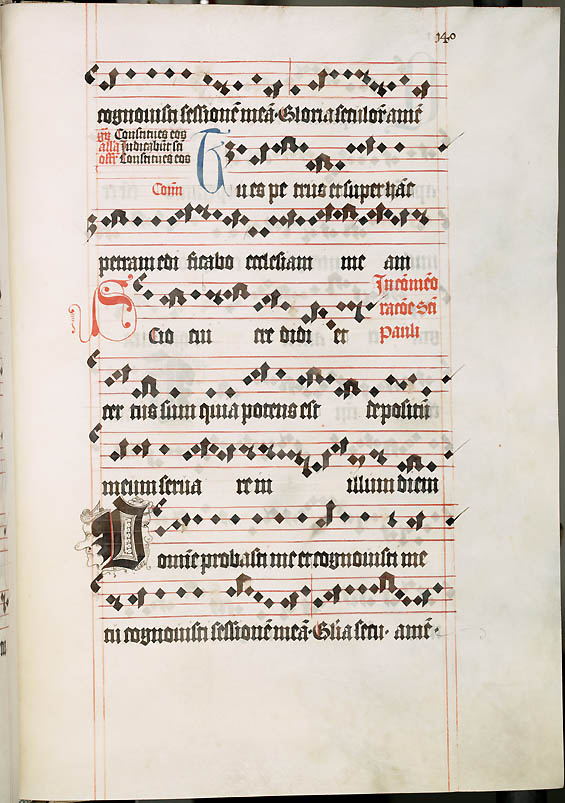 140
cognouisti sessionē meā · Gloria seculoꝝ amē
Constitues eos
alla Judicabūt sci
off Constitues eos
Cōm
Tu es pe trus et super hāc
petram edi ficabo ecclesiam me am
In cōmēo
racōe Sci
Pauli
Scio cui cre didi et
cer tus sum quia potens est depositū
meum serua re in illum diem
Domīe probasti me et cognouisti me
tu cognouisti sessionē meā · Glīa secu · amē ·